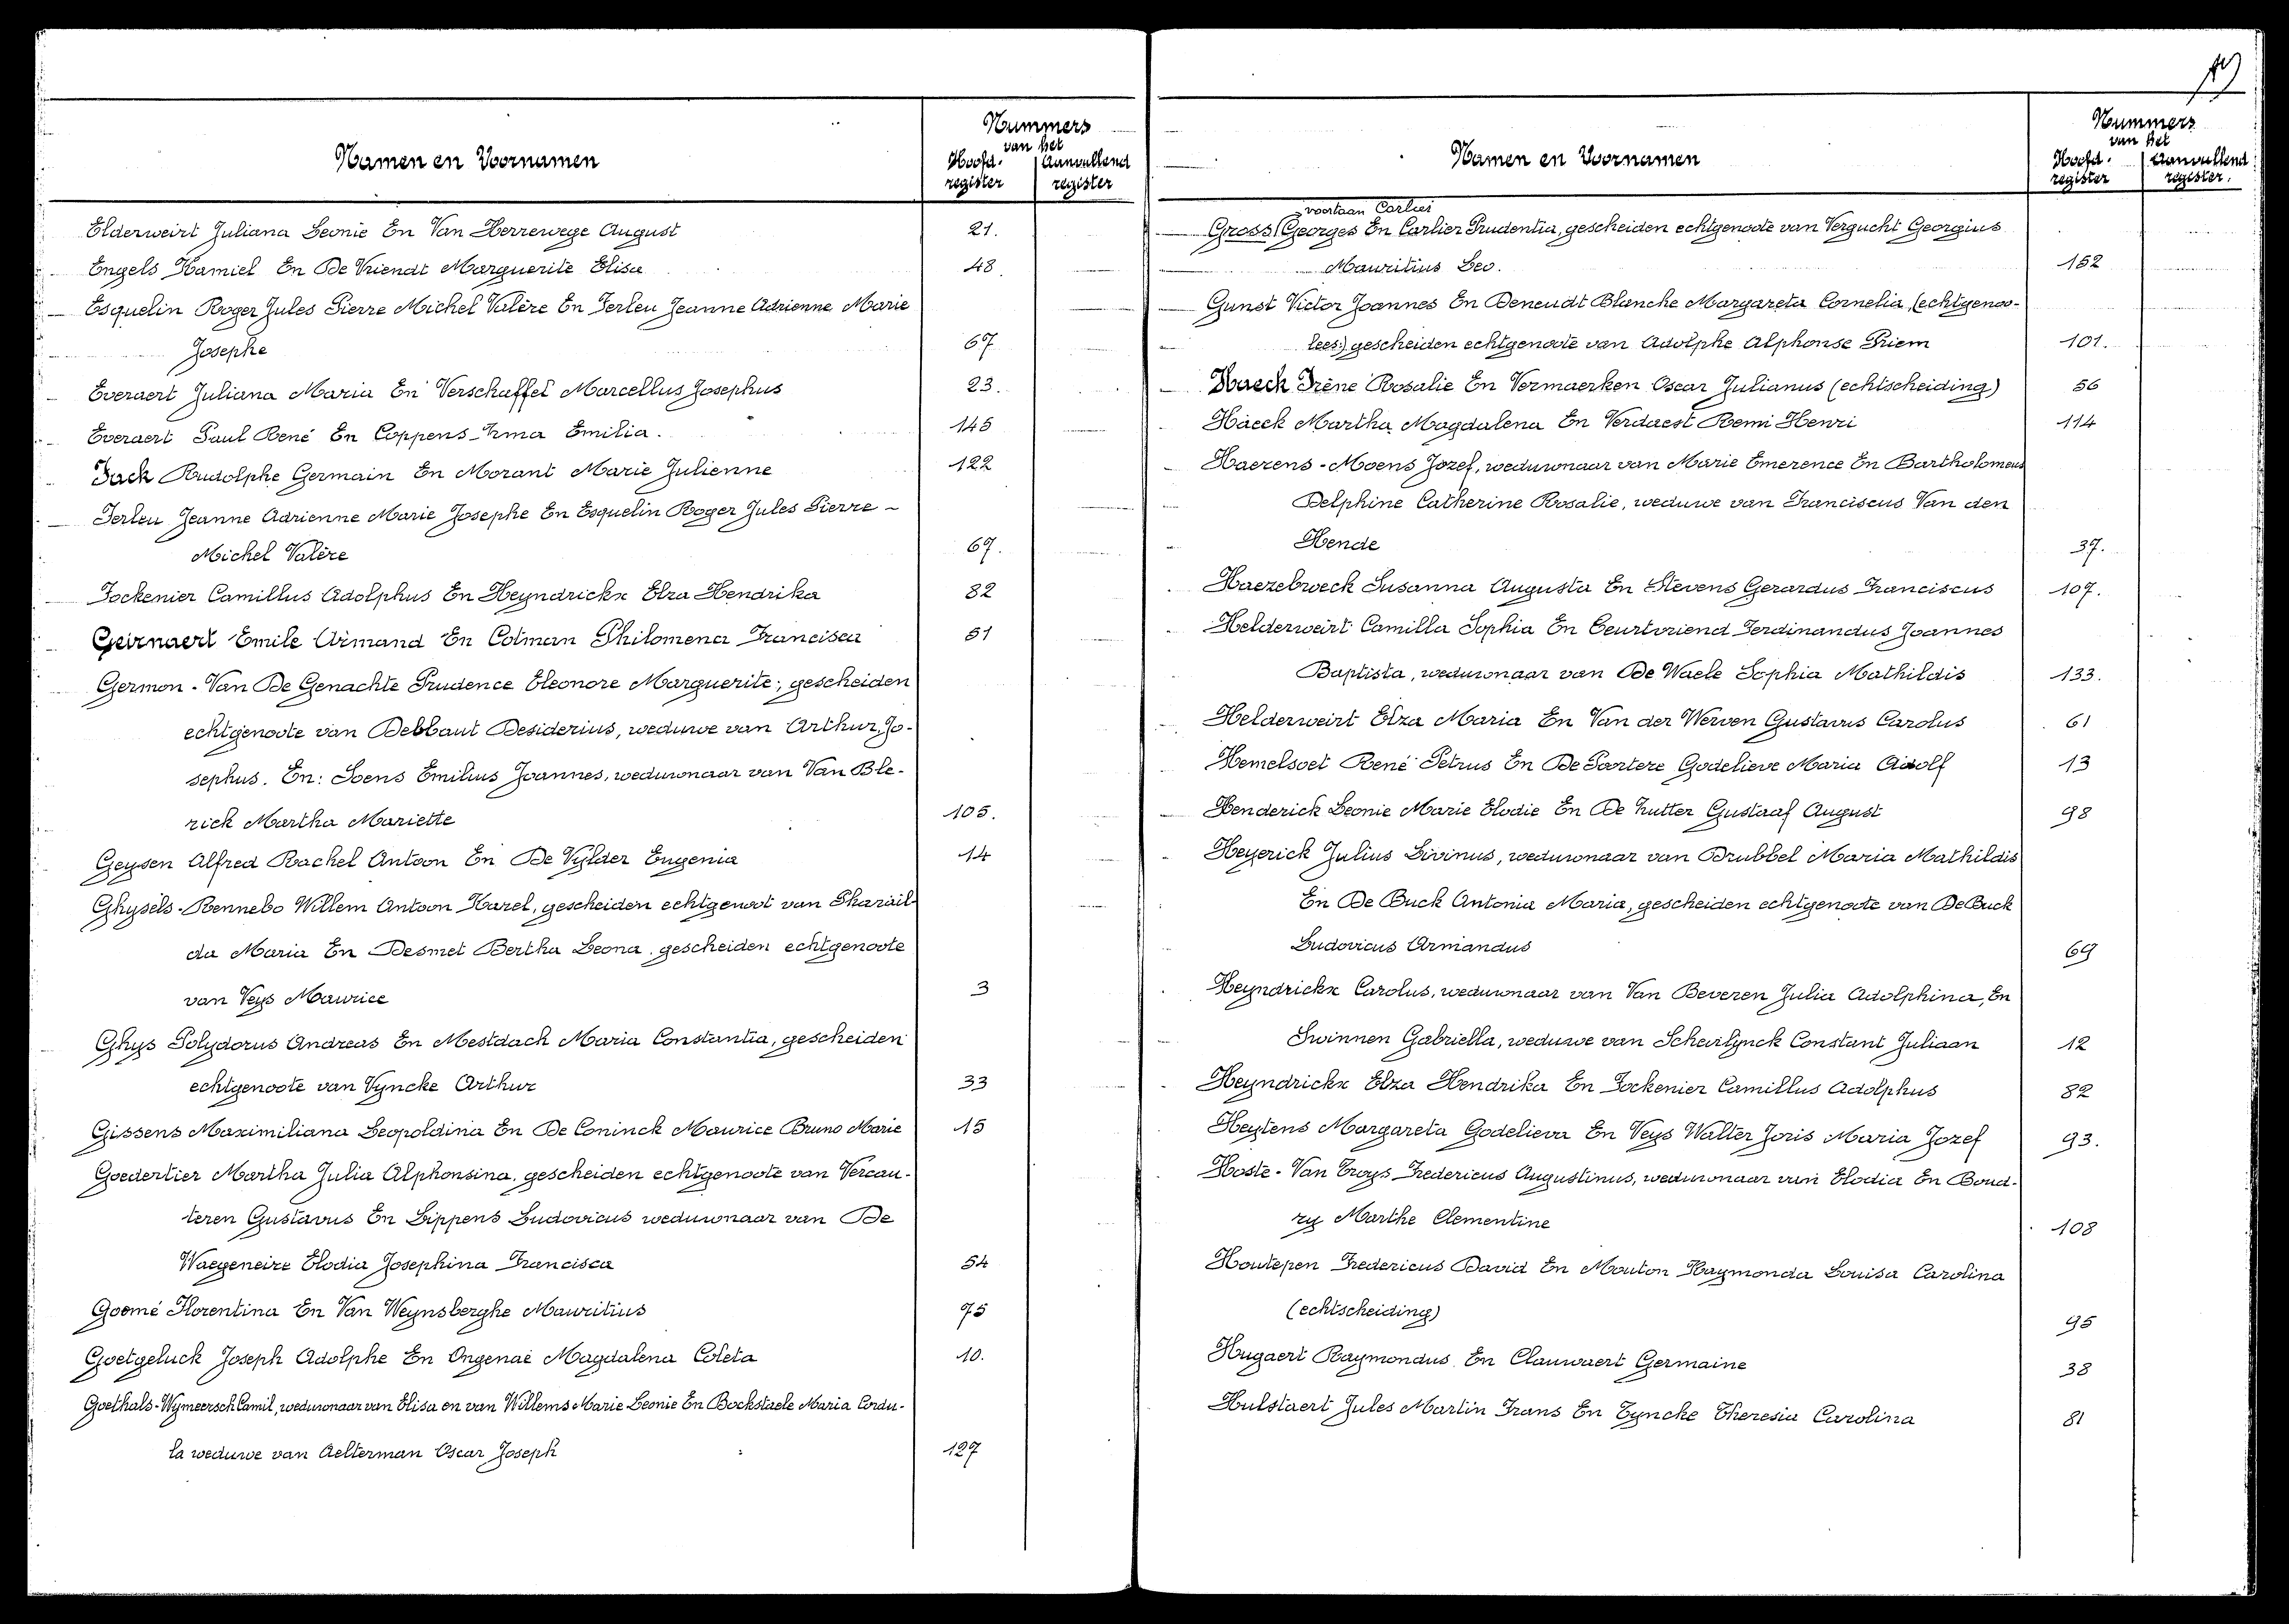 Namen en Voornamen
Nummers
van het
Hoofd- Aanvullend
register register
Elderweirt Juliana Leonie En Van Herrewege August 21.
Engels Kamiel En De Vriendt Marguerite Elisa 48.
Esquelin Roger Jules Pierre Michel Valère En Ferleu Jeanne Adrienne Marie
Josephe 67
Everaert Juliana Maria En Verschaffel Marcellus Josephus 23.
Everaert Paul René En Coppens Irma Emilia. 145
Fack Rudolphe Germain En Morant Marie Julienne 122
Ferleu Jeanne Adrienne Marie Josephe En Esquelin Roger Jules Pierre -
Michel Valère 67.
Fockenier Camillus Adolphus En Heyndrickx Elza Hendrika 82
Geirnaert Emile Armand En Colman Philomena Francisca 51
Germon - Van De Genachte Prudence Eleonore Marguerite; gescheiden
echtgenoote van Debbaut Desiderius, weduwe van Arthur, Jo-
sephus. En: Soens Emilius Joannes, weduwnaar van Van Ble-
rick Martha Mariette 105.
Geysen Alfred Rachel Antoon En De Vylder Eugenia 14
Ghysels - Rennebo Willem Antoon Karel, gescheiden echtgenoot van Pharaïl-
da Maria En Desmet Bertha Leona, gescheiden echtgenoote
van Veys Maurice 3
Ghys Polydorus Andreas En Mestdach Maria Constantia, gescheiden
echtgenoote van Vyncke Arthur 33
Gissens Maximiliana Leopoldina En De Coninck Maurice Bruno Marie 15
Goedertier Martha Julia Alphonsina, gescheiden echtgenoote van Vercau-
teren Gustavus En Lippens Ludovicus weduwnaar van De
Waegeneire Elodia Josephina Francisca 54
Goomé Florentina En Van Weynsberghe Mauritius 75
Goetgeluck Joseph Adolphe En Ongenae Magdalena Coleta 10.
Goethals - Wymeersch Camil, weduwnaar van Elisa en van Willems Marie Leonie En Bockstaele Maria Cordu-
la weduwe van Aelterman Oscar Joseph 127
Namen en Voornamen
Nummers
van het
Hoofd- Aanvullend
register register.
voortaan Carlier
Gross (Georges En Carlier Prudentia, gescheiden echtgenoote van Vergucht Georgius
Mauritius Leo. 152
Gunst Victor Joannes En Beneudt Blanche Margareta Cornelia, (echtgenoo-
lees:) gescheiden echtgenoote van Adolphe Alphonse Priem 101.
Haeck Irène Rosalie En Vermaerken Oscar Julianus (echtscheiding) 56
Haeck Martha Magdalena En Verdaest Remi Henri 114
Haerens - Moens Jozef, weduwnaar van Marie Emerence En Bartholomeus
Delphine Catherine Rosalie, weduwe van Franciscus Van den
Hende 37.
Haezebroeck Susanna Augusta En Stevens Gerardus Franciscus 107.
Helderweirt Camilla Sophia En Ceurtvriend Ferdinandus Joannes
Baptista, weduwnaar van De Waele Sophia Mathildis 133.
Helderweirt Elza Maria En Van der Werven Gustavus Carolus 61
Hemelsoet René Petrus En De Poortere Godelieve Maria Adolf 13
Henderick Leonie Marie Elodie En De Rutter Gustaaf August 98
Heyerick Julius Livinus, weduwnaar van Brubbel Maria Mathildis
En De Buck Antonia Maria, gescheiden echtgenoote van De Buck
Ludovicus Armandus 69
Heyndrickx Carolus, weduwnaar van Van Beveren Julia Adolphina, En
Swinnen Gabriella, weduwe van Scheirlynck Constant Juliaan 12
Heyndrickx Elza Hendrika En Fockenier Camillus Adolphus 82
Heytens Margareta Godelieva En Veys Walter Joris Maria Jozef 93.
Hoste - Van Troys Fredericus Augustinus, weduwnaar van Elodia En Boud-
ry Marthe Clementine 108
Houtepen Fredericus David En Mouton Raymonda Louisa Carolina
(echtscheiding) 95
Hugaert Raymondus En Clauwaert Germaine 38
Hulstaert Jules Martin Frans En Tyncke Theresia Carolina 81